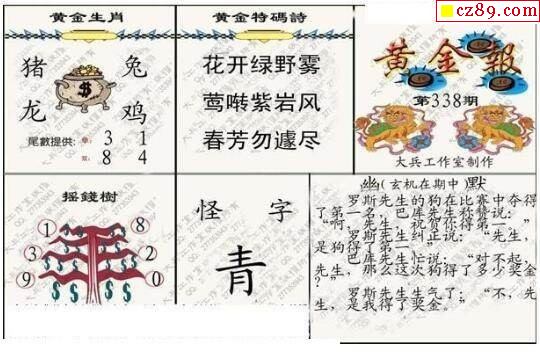 cz89.com
黄金生肖
猪 兔
龙 鸡
尾數提供: 單: 3 1
雙: 8 4
黄金特碼詩
花开绿野雾
莺啭紫岩风
春芳勿遽尽
黄金報
第338期
大兵工作室制作
摇錢樹
1 8
9 0
3 2
怪 字
青
幽(玄机在期中)默
罗斯先生的狗在比赛中夺得
了第一名，巴库先生称赞说：
“啊，先生，祝贺你得第一。”
罗斯先生纠正说：“先生，
是狗得了第一。”
巴库先生忙说：“对不起，
先生，那么这次狗得了多少奖金
？”
罗斯先生生气了：“不，先
生，是我得了奖金。”